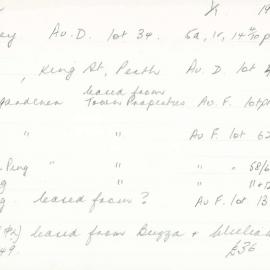 19
ey Av. D. lot 34. 5a, 1r, 14 4/10 p
, King St, Perth Av. D. lot
gardener leased from Town Properties Av. F. lot pt
" " Av F. lot 62
Ping " " " 58/6
g " " "
g. leased from ? Av F. lot 13
leased from Buzza +
49. £36